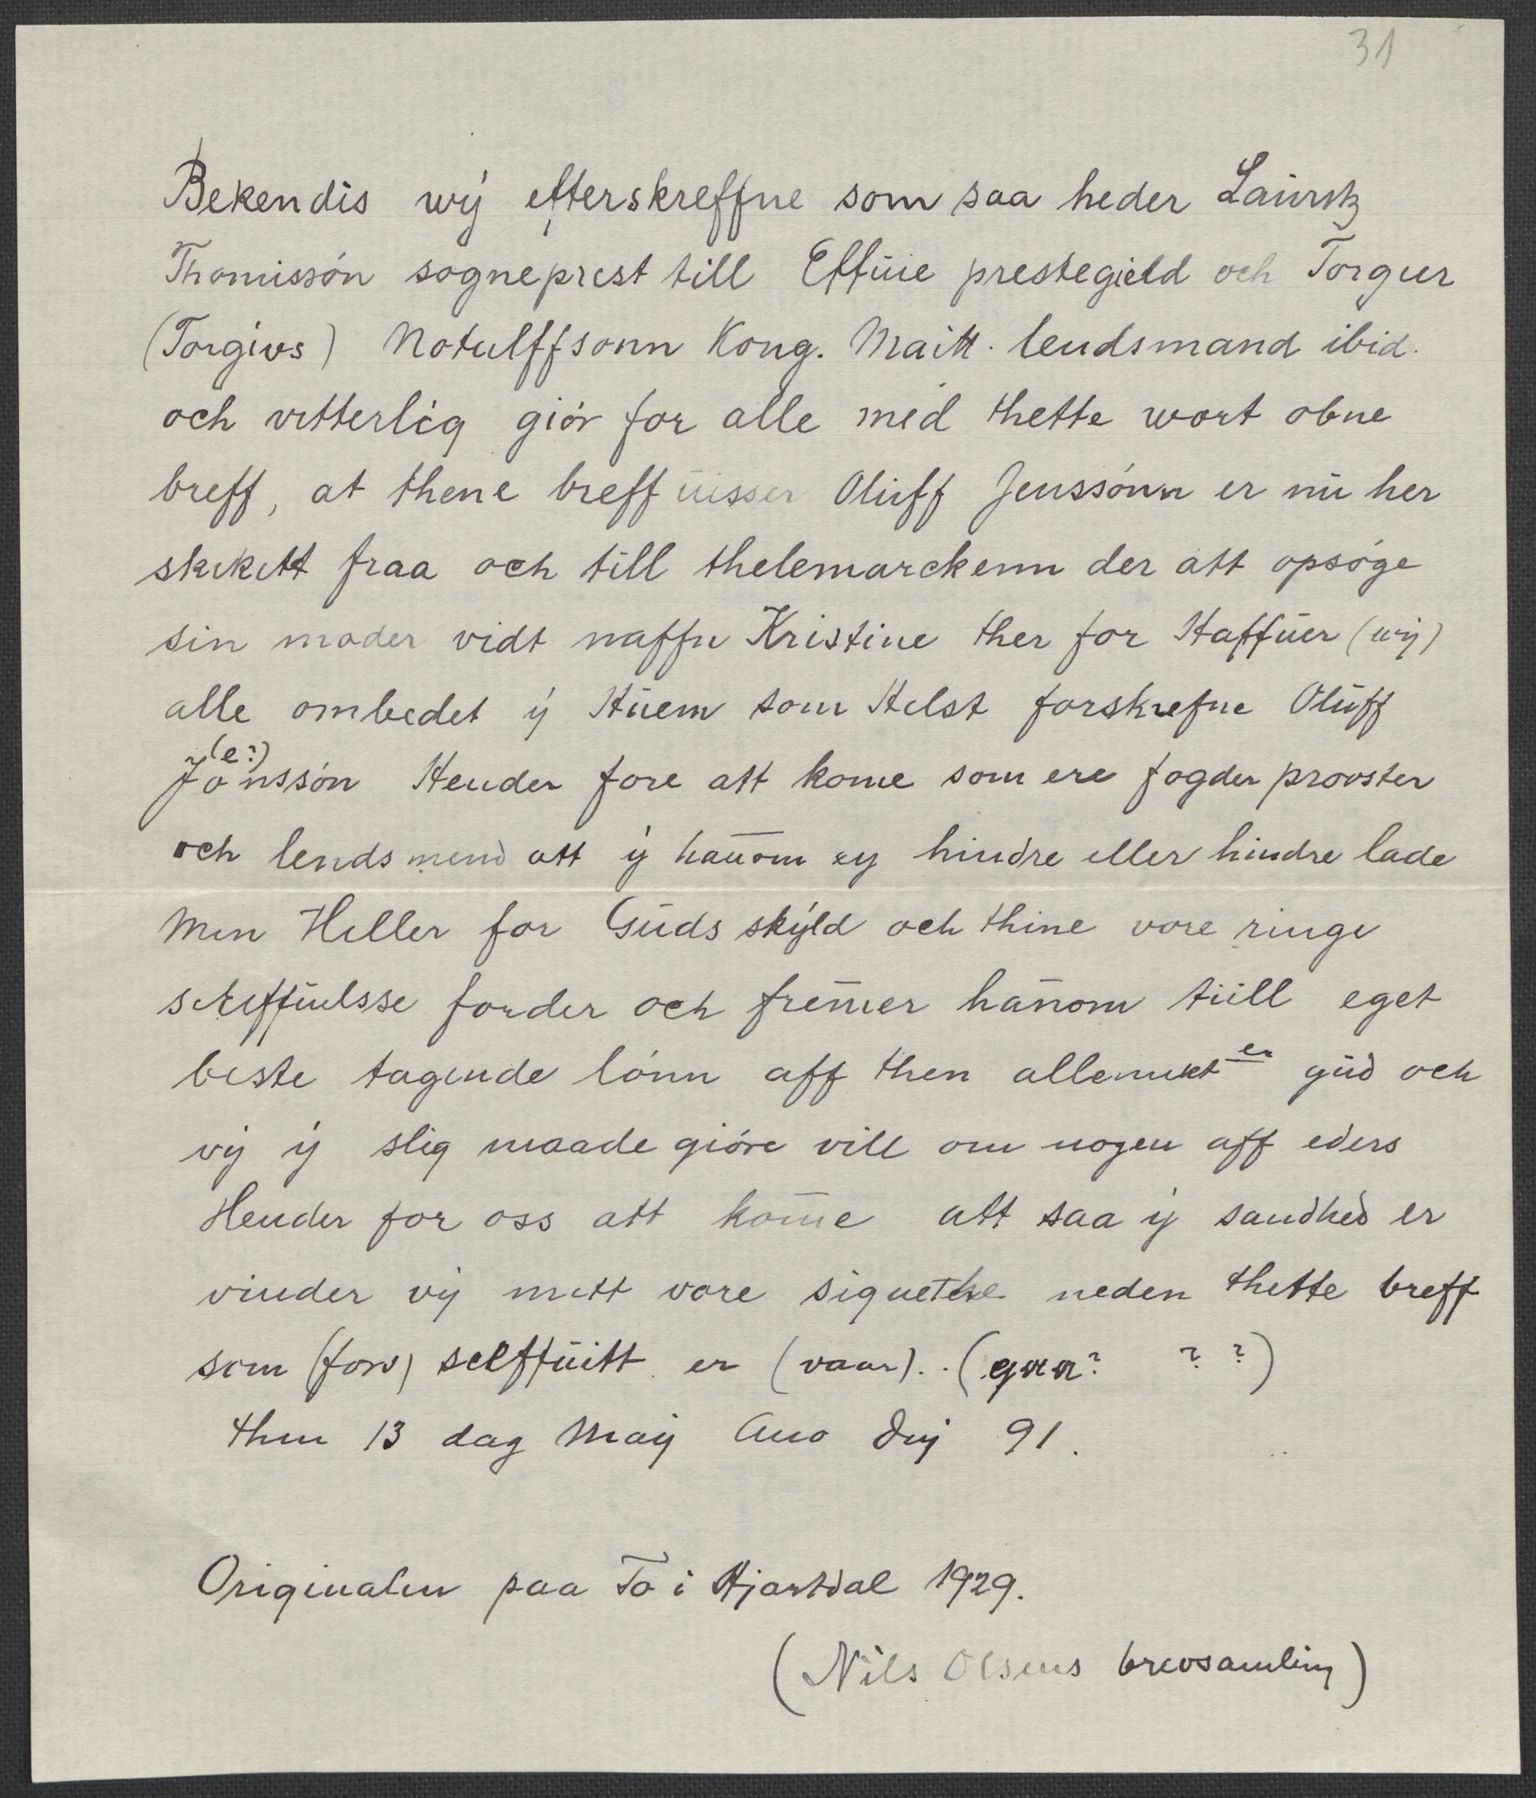 31
Bekendis wÿ efterskreffne som saa heder Laürstz
Thomissón sogneprest till Effüie prestegield och Torguer
(Torgivs) Notulffsonn Kong. Maitt. lendsmand ibid.
och vitterlig giór for alle med thette wort obne
breff, at thene breff üisser Olüff Jenssónn er nü her
skikett fraa och till thelemarckenn der att opsóge
sin moder vidt naffn Kristine ther for Haffüer (wÿ)
alle ombedet ÿ Hüem som Helst forskrefne Olüff
(e?)
Jonssón Hender fore att kome som ere fogder provster
och lendsmend att ÿ han̄om ey hindre eller hindre lade
Men Heller for Güds skÿld och thine vore ringe
skreffüelsse forder och frem̄er han̄om tiill eget
beste tagende lónn aff then allemekt er güd och
vÿ ÿ slig maade gióre vill om nogen aff eders
Hender for oss att kom̄e att saa ÿ sandhed er
vinder vÿ mett vore signethe neden thette breff
som (forv) selffüitt er (vaar). . (gaa? ? ?)
then 13 dag Maÿ Ano Dnj 91.
Originalen paa To i Hjartdal 1929.
(Nils Olsens brevsamling)